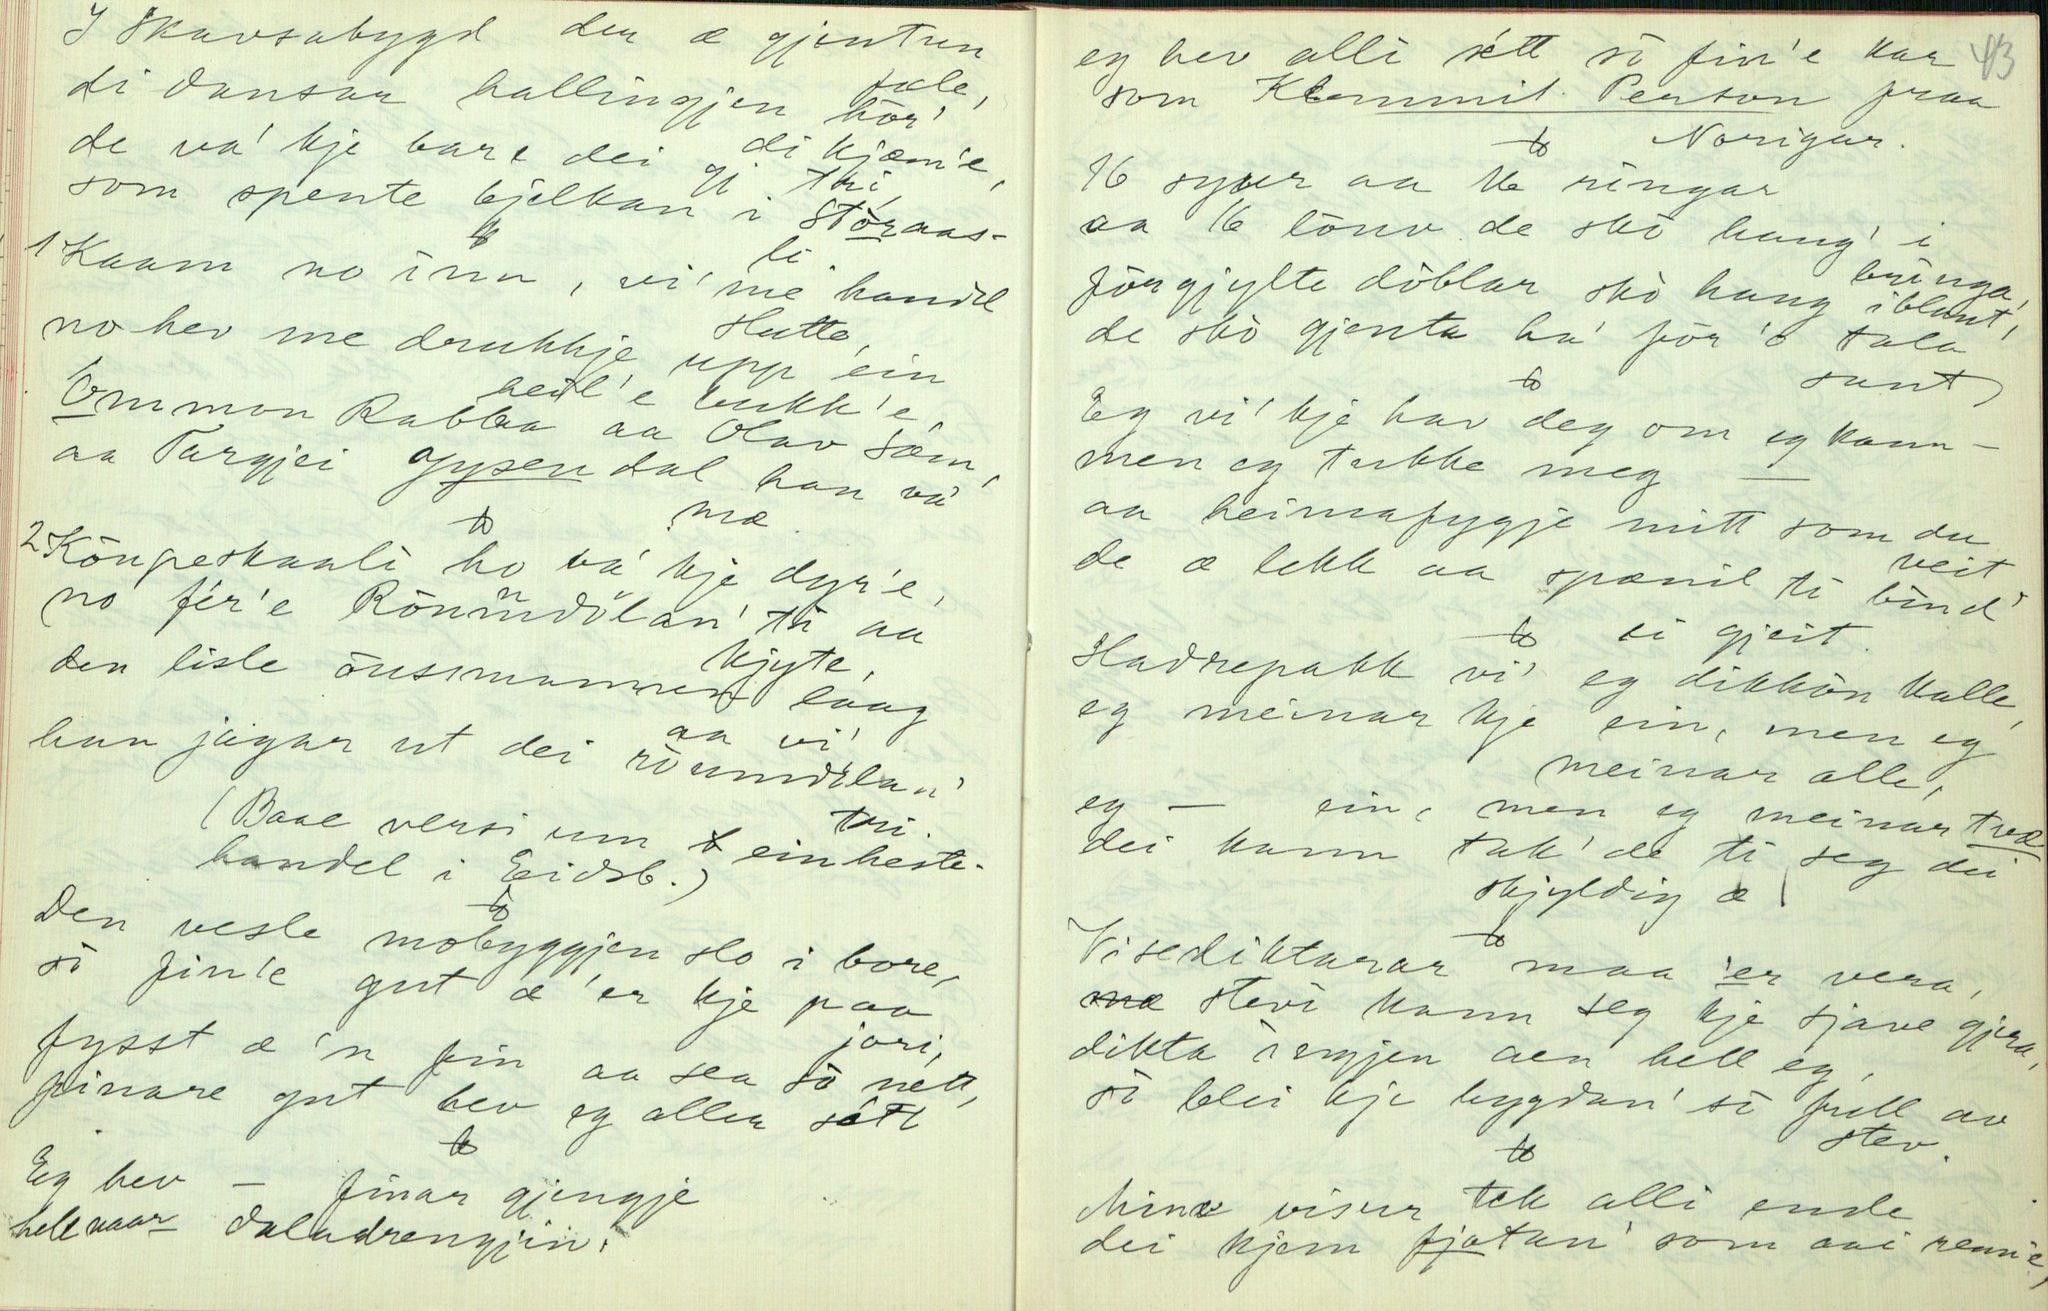 I Skavsabygd der æ gjentun
sæle,
di dansar hallingjen hòr'
di kjem'e,
de va' kje bare dei gj tri,
som spente bjelkan i Stòraas-
li.
1 Kaam no inn, vi' me handel
slutte,
no hev me drukkje upp ein
heil'e bukk'e
Ommon Rabbaa aa Olav Søm,
aa Targjei Gysen dal han va'
mæ
2 Kòngeskaali ho va' kje dyr'e,
no fér'e Ròninndòlan' tri aa
kjyte,
den lisle òusmannen laag
aa vi'
han jagar ut dei ròundòlan'
tri.
(Baae versi um ein heste-
handel i Eidsb.)
Den vesle mobyggjen slo i bore,
sò fin'e gut æ 'er kje paa
jori,
fysst æ 'n fin aa sea sò nétt,
finare gut hev eg aller sétt
Eg hev — finar gjengje
hell vaar daladrengjin.
43
eg hev alli sétt sò fin'e kar
som Klemmit Person fraa
Norigar.
16 syver aa 16 ringar
aa 16 lònv de skò hang' i
bringa,
fòrgjylte dòblar skò hang iblant,
de skò gjenta ha' fòr 'ò tala
sant
Eg vi' kje hav deg om eg kann —
men eg tukke meg —
aa heimafygje mitt som du
veit
de æ lekk aa spænil ti bind'
ei gjeit.
Sladrepakk vi' eg dikkòn kalle,
eg meinar kje ein, men eg
meinar alle,
eg — ein, men eg meinar tvæ
dei kann tak' de ti seg dei
skjyldig æ!
Visediktarar maa 'er vera,
stevi kann seg kje sjave gjera,
dikta ingjen aen hell eg,
sò blei kje bygdan' sò full av
stev.
Mine viser tek alli ende
dei kjem fjotan' som aai renn'e,